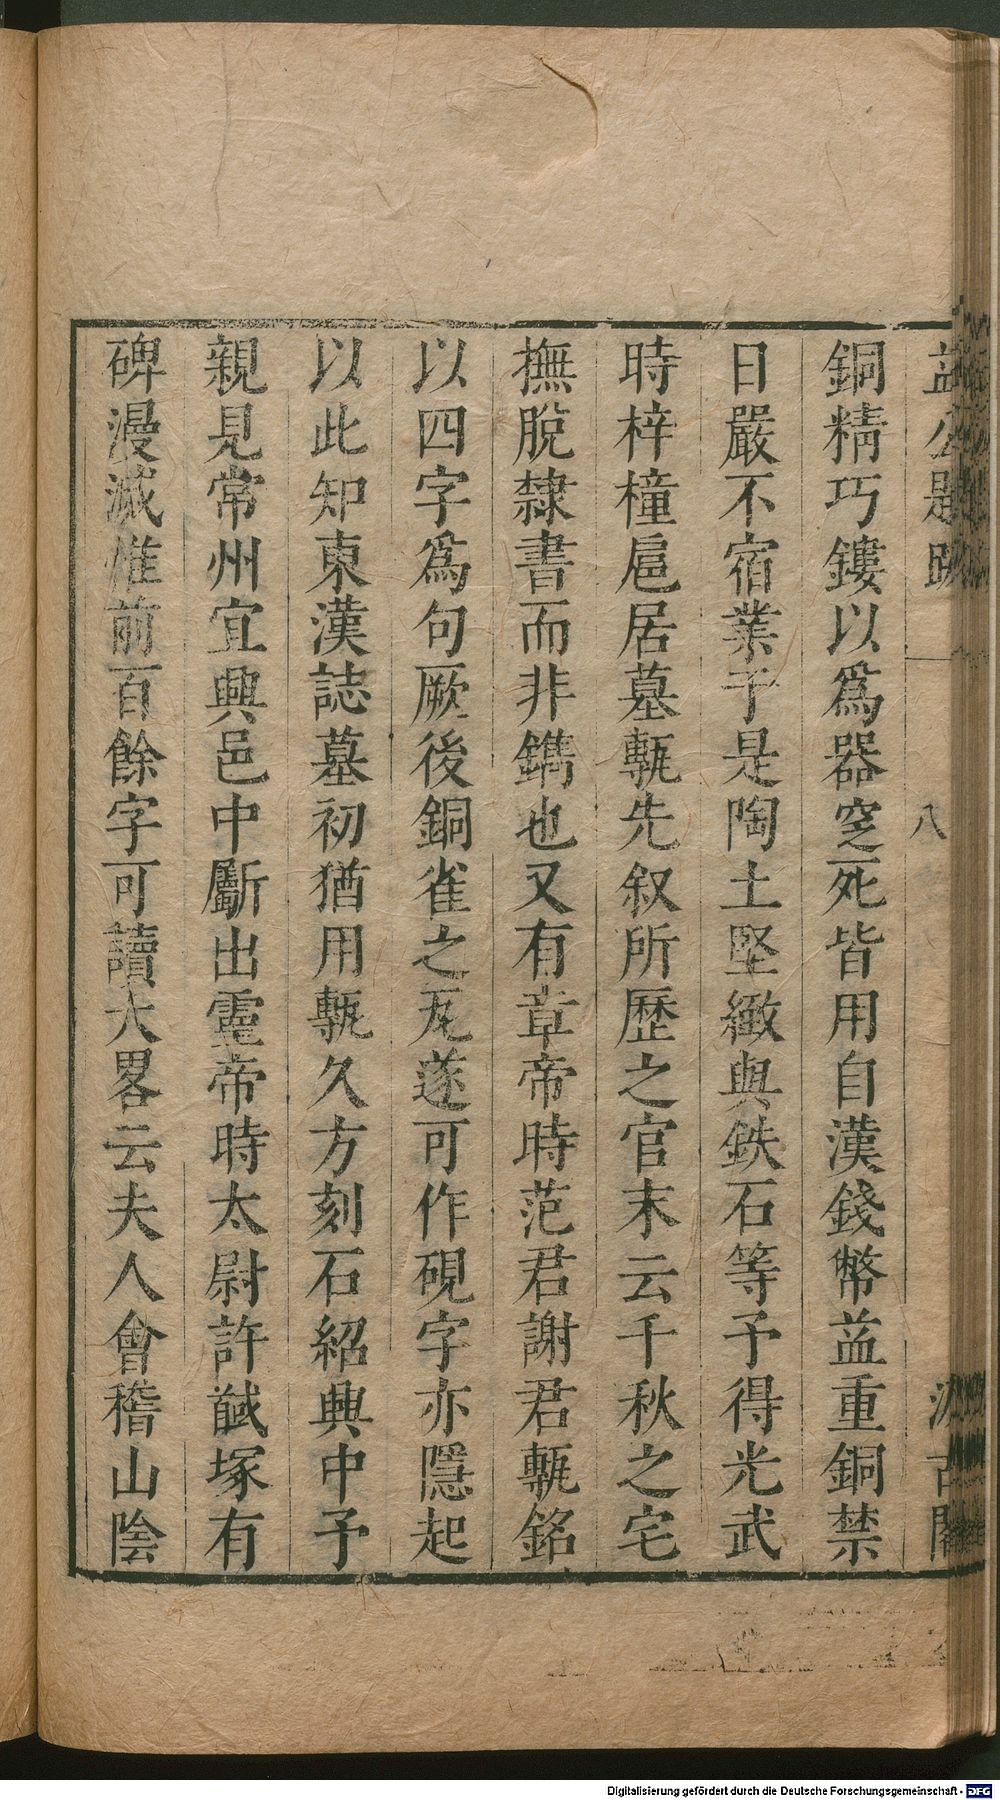 益公題跋 八 汲古閣
銅精巧鏤以爲器窆死皆用自漢錢幣益重銅禁
日嚴不宿業于是陶土堅緻與鉄石等予得光武
時梓橦扈居墓甎先叙所歷之官末云千秋之宅
撫脫隸書而非鐫也又有章帝時范君謝君甎銘
以四字爲句厥後銅雀之瓦遂可作硯字亦隱起
以此知東漢誌墓初猶用甎久方刻石紹興中予
親見常州宜興邑中斸出靈帝時太尉許馘塚有
碑漫滅惟前百餘字可讀大畧云夫人會稽山陰
Digitalisierung gefördert durch die Deutsche Forschungsgemeinschaft - DFG